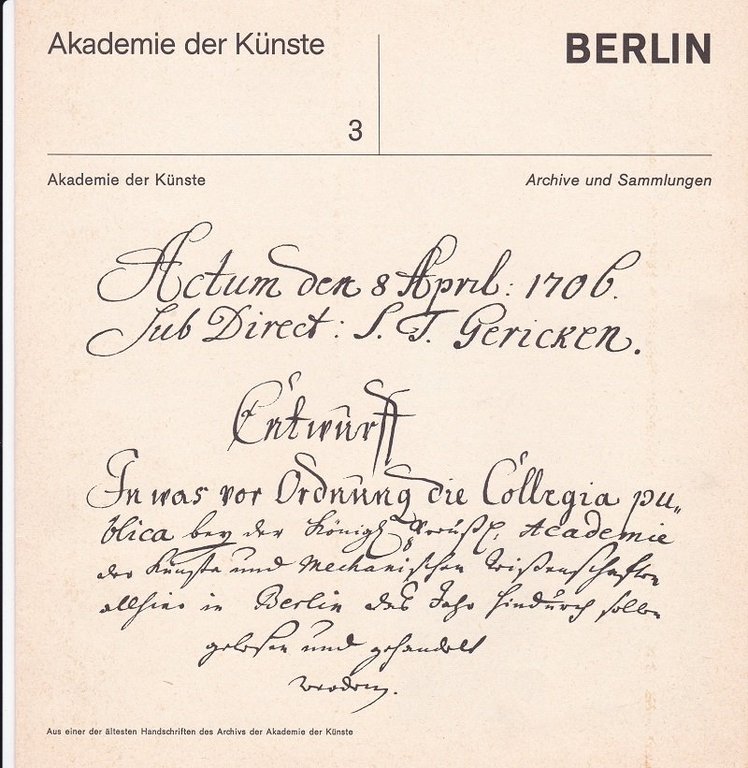 Akademie der Künste
BERLIN
3
Akademie der Künste
Archive und Sammlungen
Actum den 8 April: 1706.
Sub Direct: S. T. Gericken.
Entwurff
In was vor Ordnung die Collegia pu„
blica bey der Königl. Preußl. Academie
der Künste und Mechanischen Wißenschafften
allhier in Berlin das Jahr hindurch sollen
gelesen und gehandelt
werden.
Aus einer der ältesten Handschriften des Archivs der Akademie der Künste